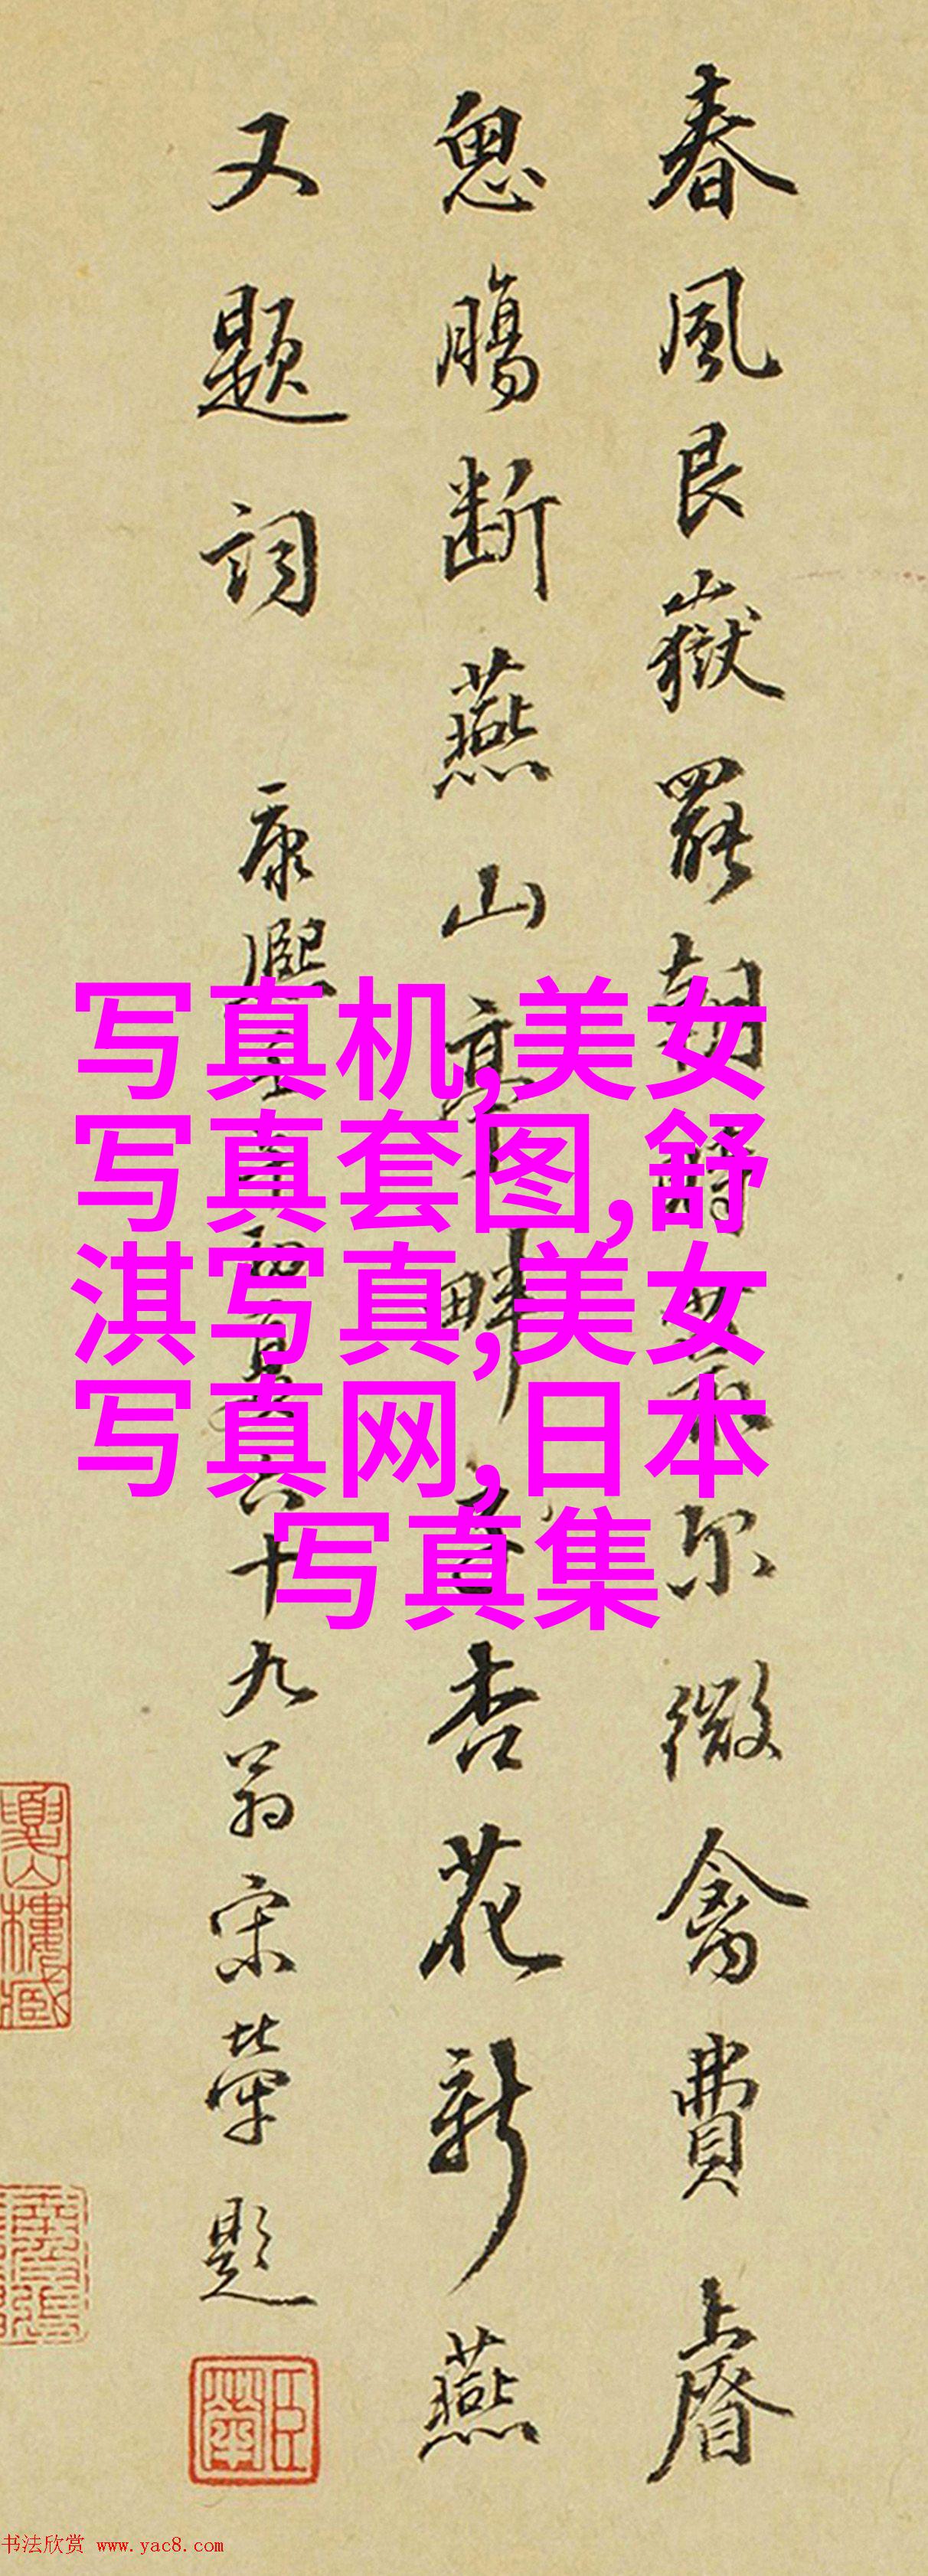 春風艮嶽罷朝時 尔微禽費上眷
忽腸断燕山亭畔 杏花新燕
又題詞
康熈 九翁宋犖題
写真机,美女
写真套图,舒
淇写真,美女
写真网,日本
写真集
书法欣赏 www.yac8.com